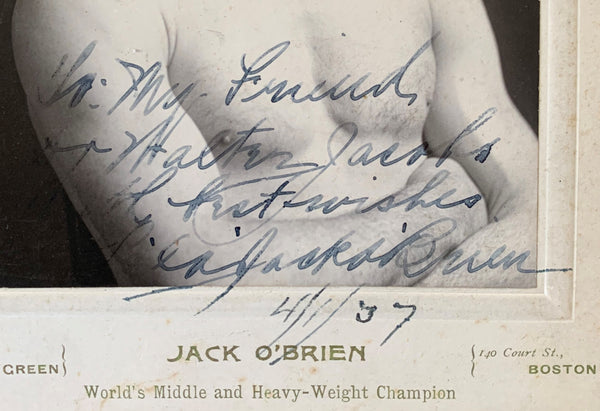 To: My Friend
Mr Walter Jacobs
Best wishes
Phila Jack O'Brien
4/1/37
JACK O'BRIEN
World's Middle and Heavy-Weight Champion
GREEN}
{140 Court St.,
BOSTON